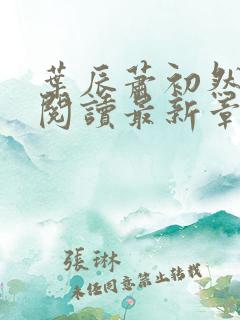 葉辰蕭初然
閱讀最新章
張琳
未經同意禁止轉載